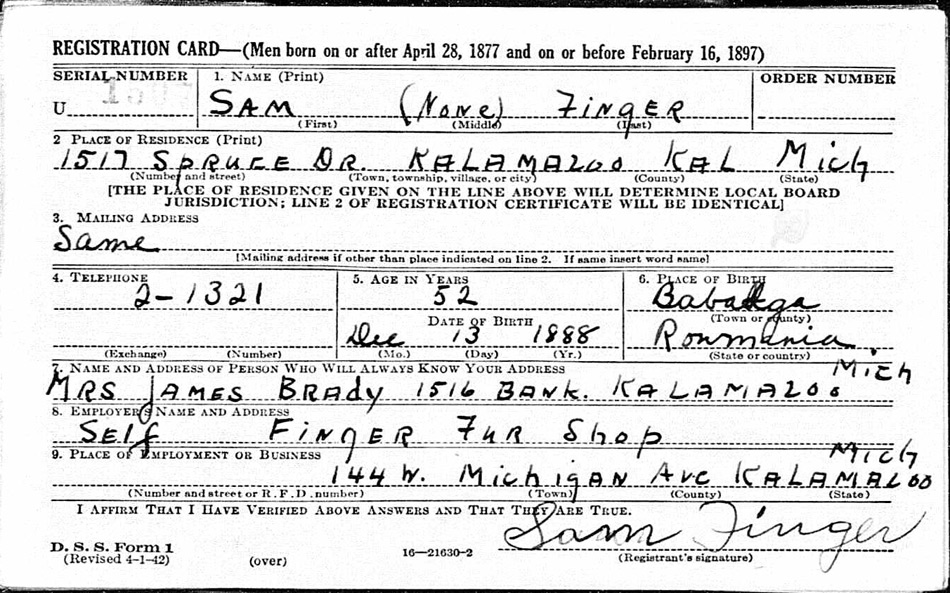 REGISTRATION CARD—(Men born on or after April 28, 1877 and on or before February 16, 1897)
SERIAL NUMBER 1. NAME (Print) ORDER NUMBER
U SAM (NONE) FINGER
(First) (Middle) (Last)
2 PLACE OF RESIDENCE (Print)
1517 SPRUCE DR. KALAMAZOO KAL MICH
(Number and street) (Town, township, village, or city) (County) (State)
[THE PLACE OF RESIDENCE GIVEN ON THE LINE ABOVE WILL DETERMINE LOCAL BOARD
JURISDICTION; LINE 2 OF REGISTRATION CERTIFICATE WILL BE IDENTICAL]
3. MAILING ADDRESS
Same
[Mailing address if other than place indicated on line 2. If same insert word same]
4. TELEPHONE 5. AGE IN YEARS 6. PLACE OF BIRTH
2-1321 52
(Town or county)
DATE OF BIRTH
Dec 13 1888 Roumania
(Exchange) (Number) (Mo.) (Day) (Yr.) (State or country)
7. NAME AND ADDRESS OF PERSON WHO WILL ALWAYS KNOW YOUR ADDRESS
MRS JAMES BRADY 1516 BANK. KALAMAZOO MICH
8. EMPLOYER'S NAME AND ADDRESS
SELF FINGER FUR SHOP
9. PLACE OF EMPLOYMENT OR BUSINESS
144 W. MICHIGAN AVE KALAMAZOO MICH
(Number and street or R. F. D. number) (Town) (County) (State)
I AFFIRM THAT I HAVE VERIFIED ABOVE ANSWERS AND THAT THEY ARE TRUE.
Sam Finger
D. S. S. Form 1
(Revised 4-1-42) (over) 16—21630-2 (Registrant's signature)